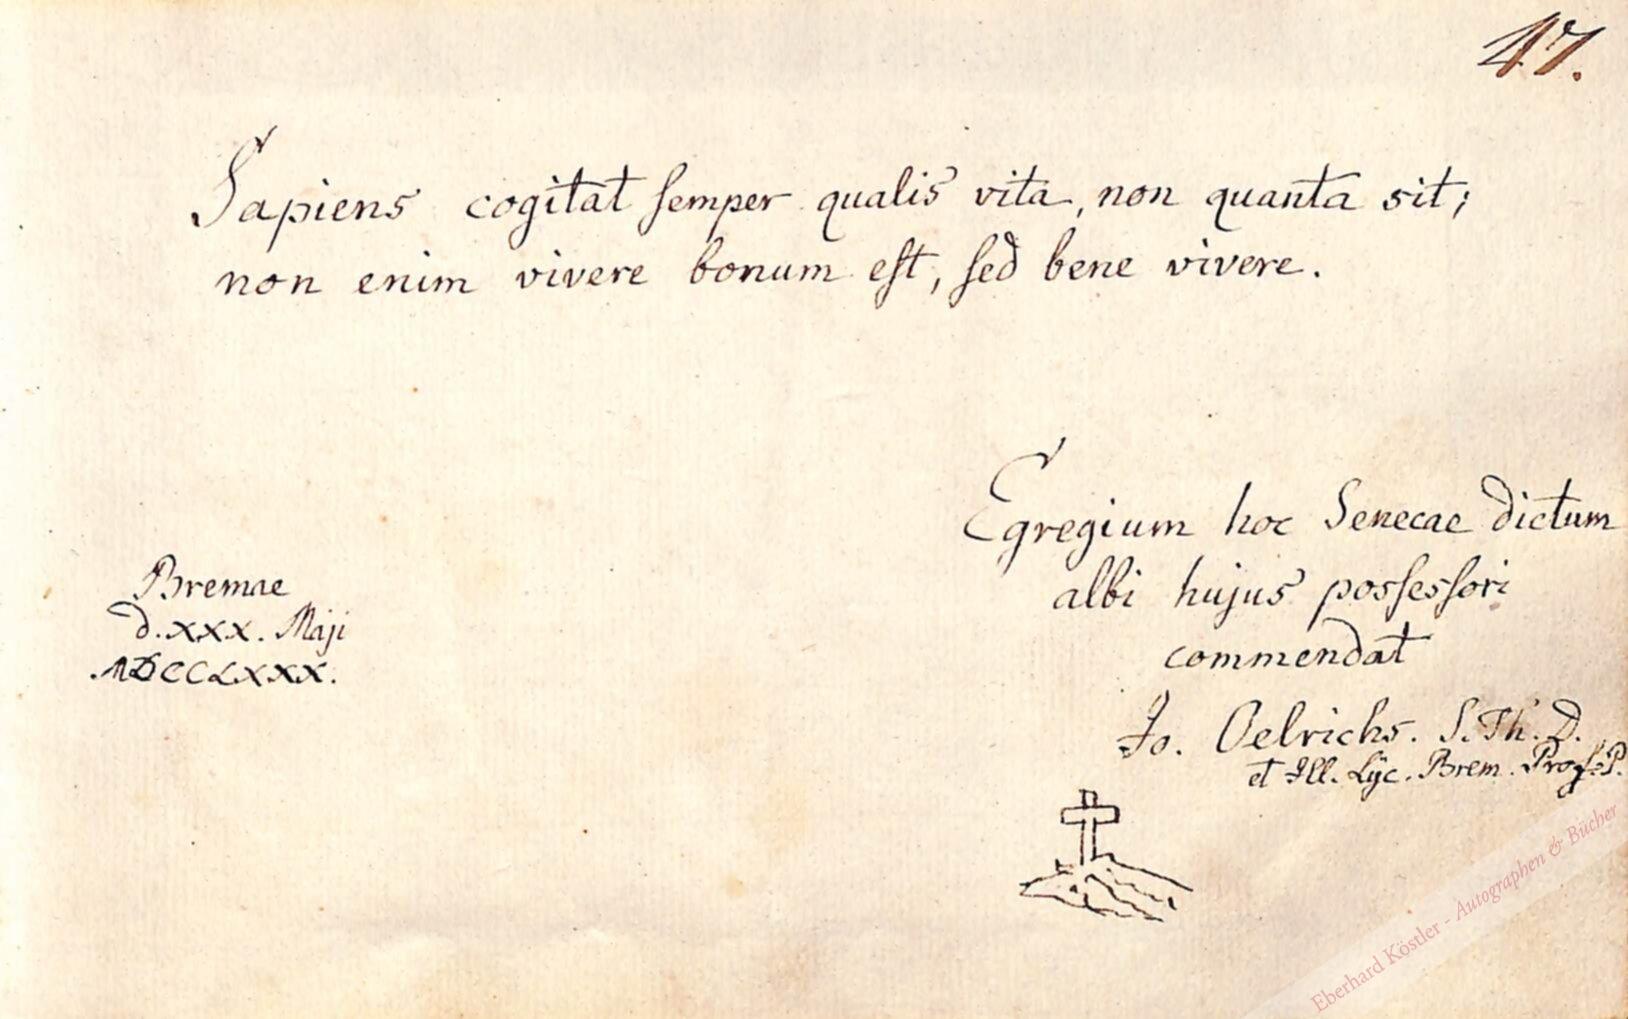 47.
Sapiens cogitat semper qualis vita, non quanta sit;
non enim vivere bonum est, sed bene vivere.
Egregium hoc Senecae dictum
albi hujus possessori
commendat
Jo. Oelrichs. S. Th. D.
et Ill. Lyc. Brem. Prof. P.
Bremae
d. XXX. Maji
MDCCLXXX.
Eberhard Köstler - Autographen & Bücher